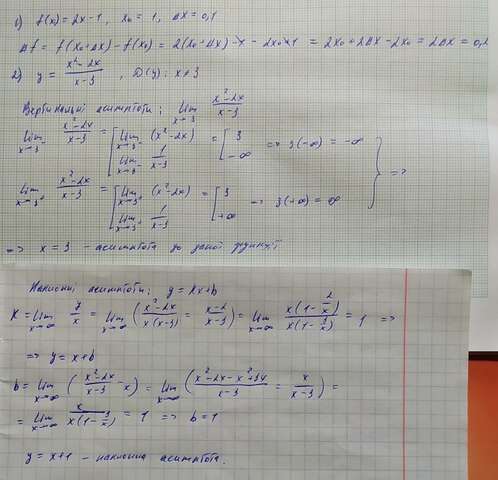 1) f(x) = 2x-1, x₀ = 1, Δx = 0,1
Δf = f(x₀+Δx) - f(x₀) = 2(x₀+Δx) - 1 - 2x₀+1 = 2x₀+2Δx - 2x₀ = 2Δx = 0,2
2) y = (x²-2x)/(x-3), D(y): x≠3
Вертикальні асимптоти: lim (x²-2x)/(x-3)
lim x→3⁻ (x²-2x)/(x-3) = [ lim x→3⁻ (x²-2x) = [ 3
lim x→3⁻ 1/(x-3) -∞ => 3(-∞) = -∞
lim x→3⁺ (x²-2x)/(x-3) = [ lim x→3⁺ (x²-2x) = [ 3 } =>
lim x→3⁺ 1/(x-3) +∞ => 3(+∞) = ∞
=> x = 3 - асимптота до даної функції
Нахильні асимптоти: y = kx+b
K = lim x→∞ y/x = lim x→∞ ((x²-2x)/(x(x-3)) = (x-2)/(x-3)) = lim x→∞ x(1-2/x)/x(1-3/x) = 1 =>
=> y = x+b
b = lim x→∞ ((x²-2x)/(x-3) - x) = lim x→∞ ((x²-2x-x²+3x)/(x-3) = x/(x-3)) =
= lim x→∞ x/x(1-3/x) = 1 => b=1
y = x+1 - нахильна асимптота.